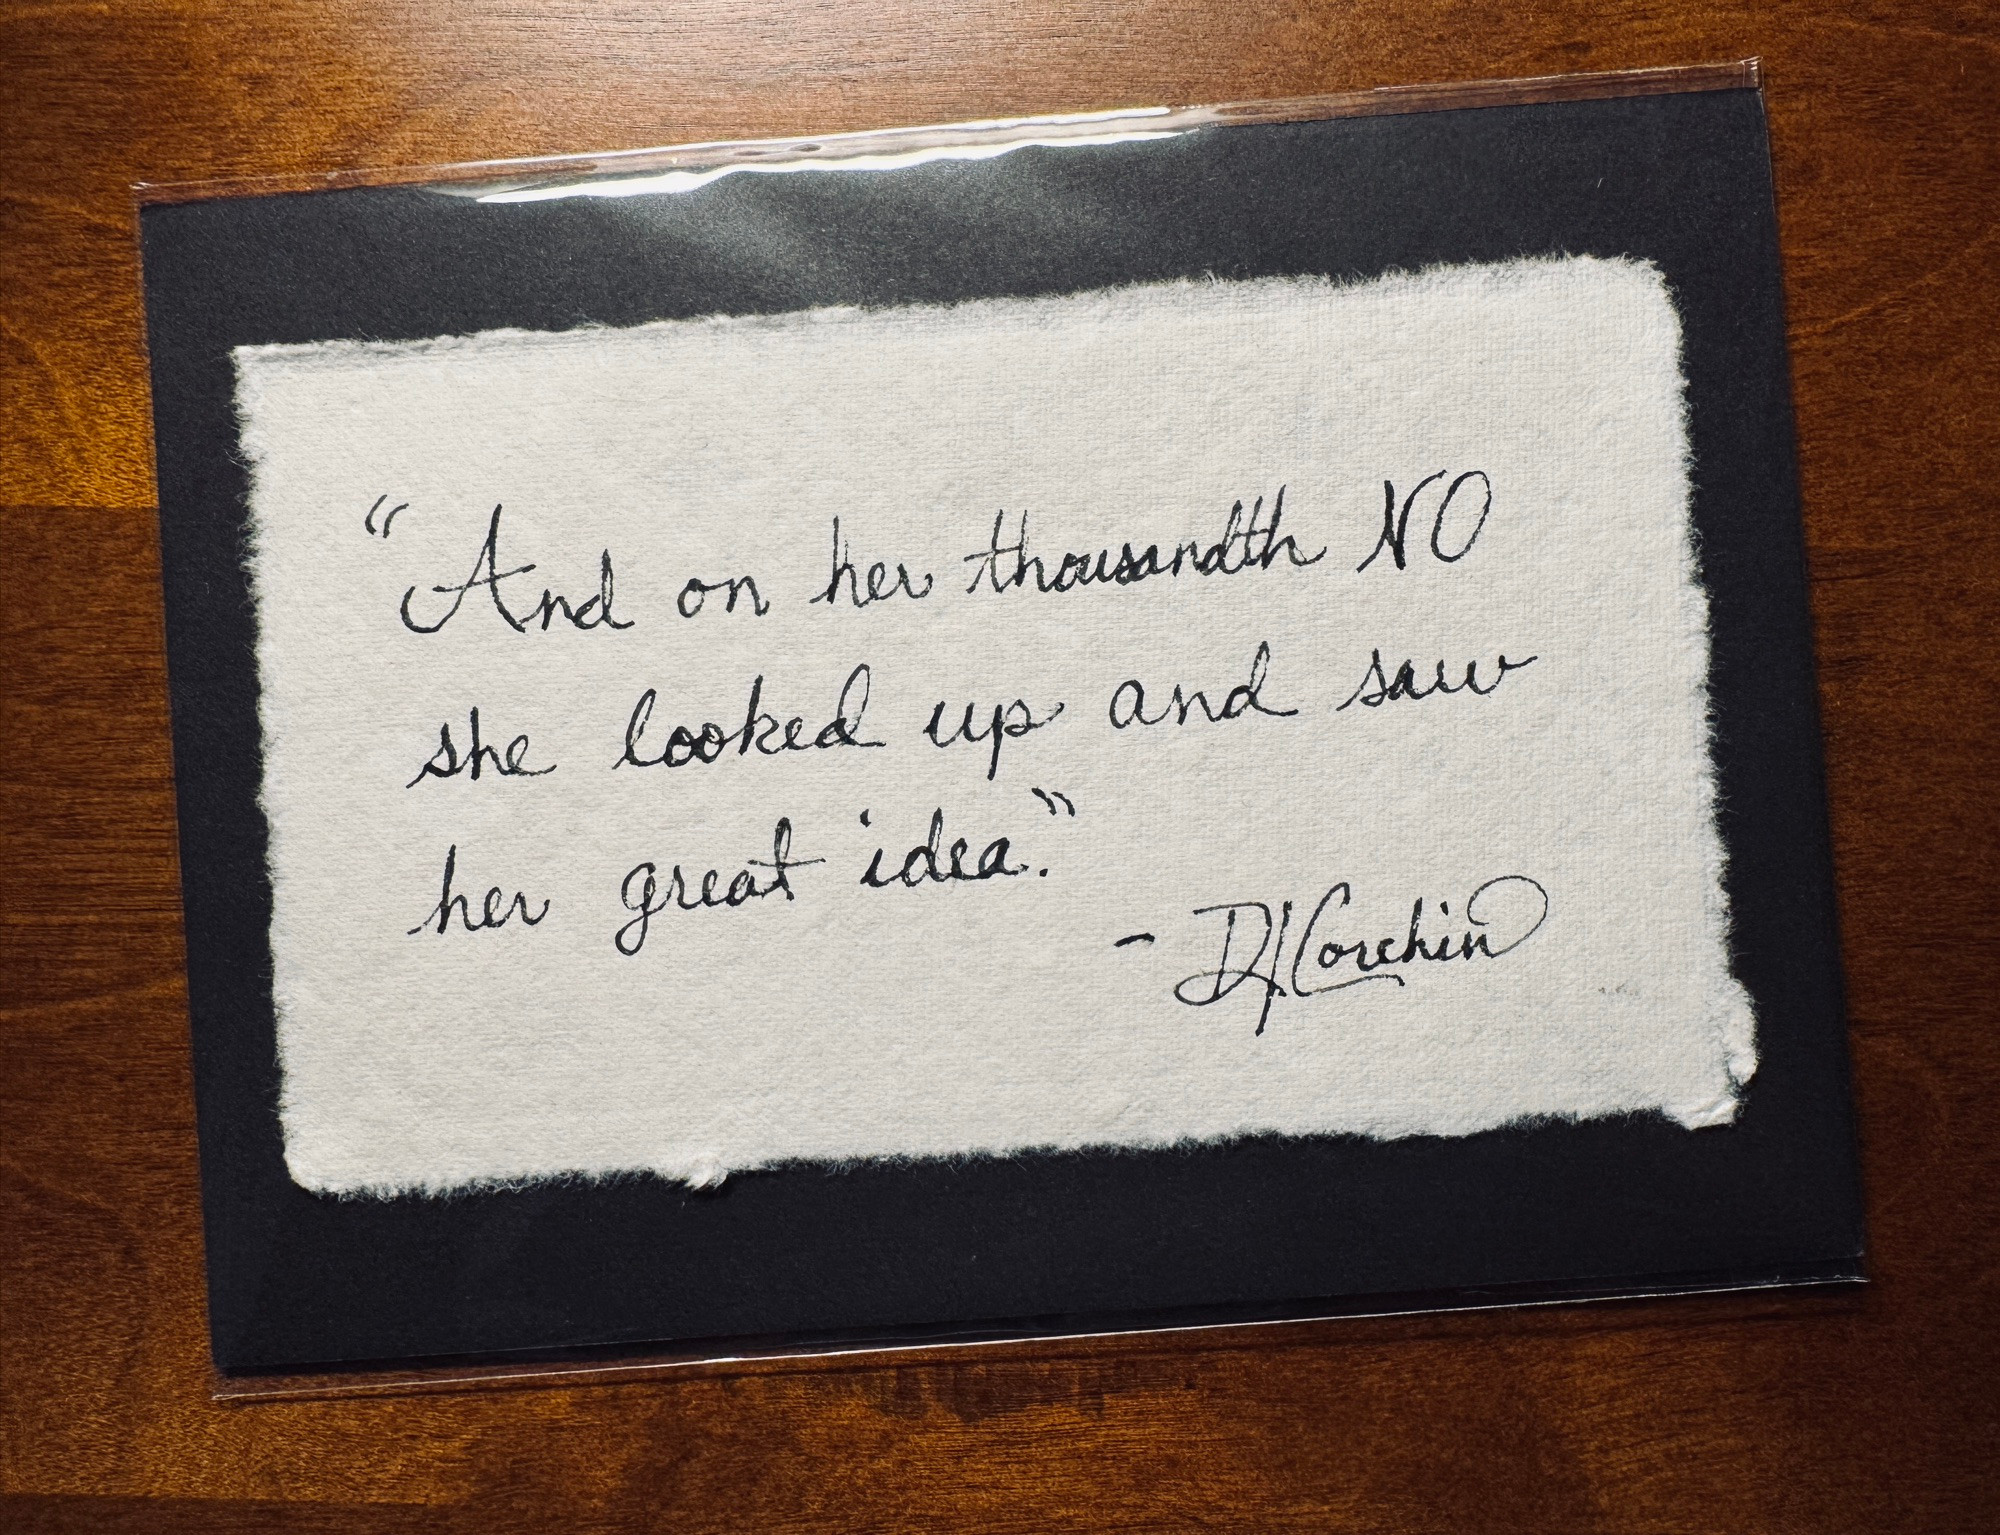 “And on her thousandth NO
she looked up and saw
her great idea.”
- DJCorchin